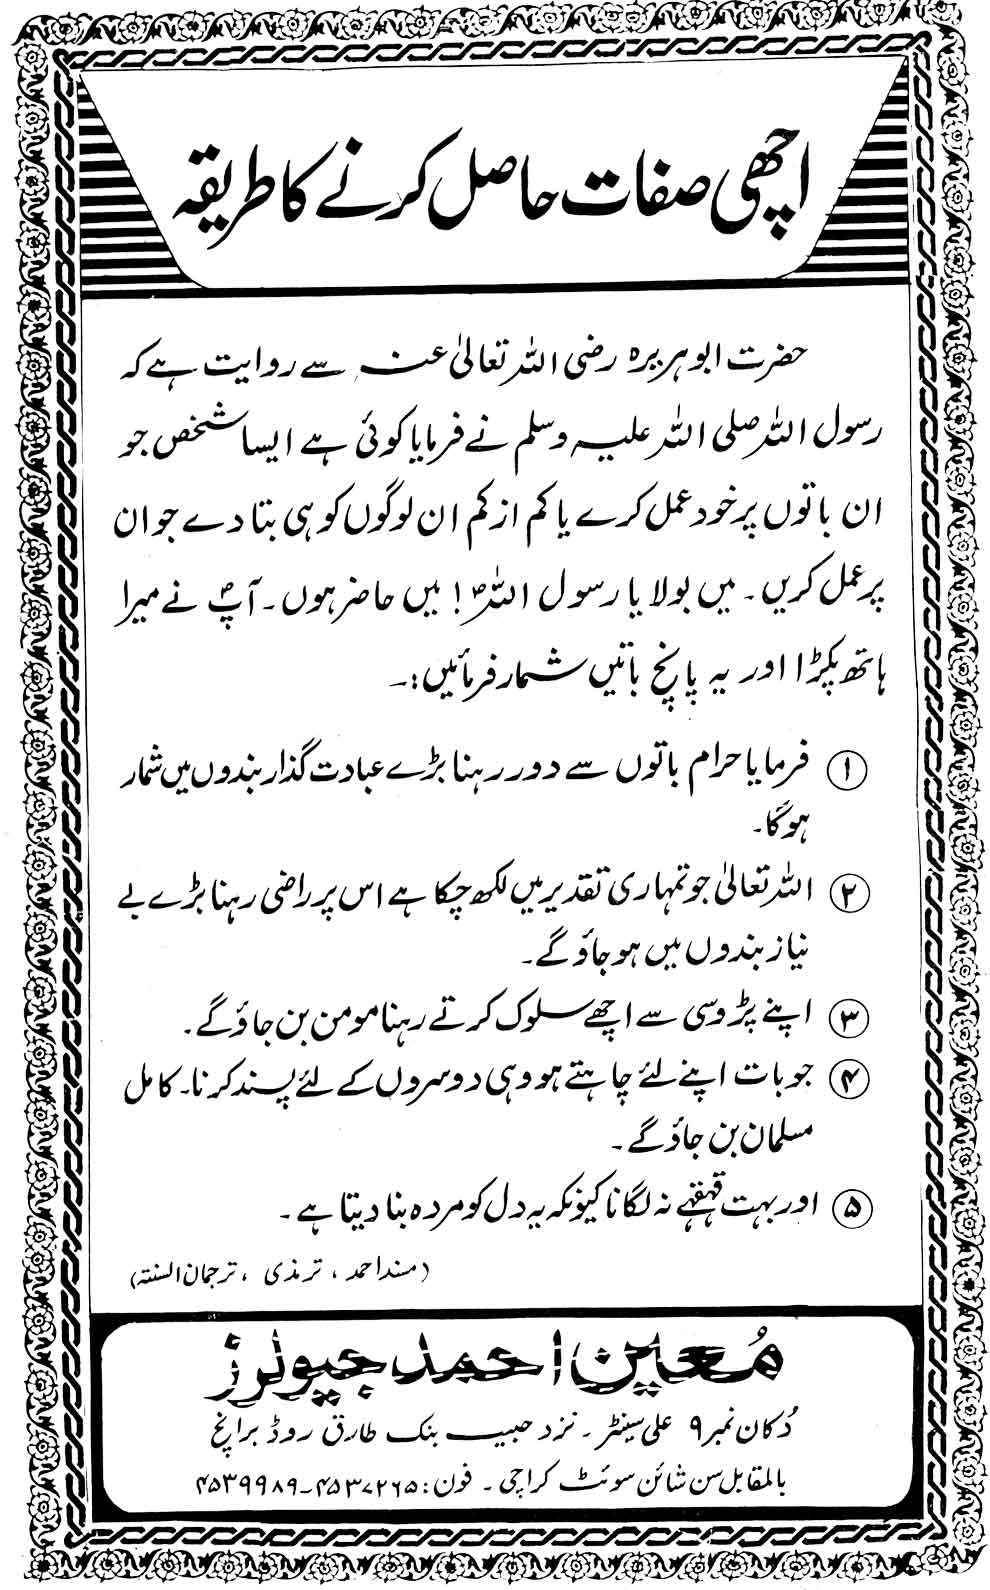 اچھی صفات حاصل کرنے کا طریقہ
حضرت ابوہریرہ رضی اللہ تعالیٰ عنہ سے روایت ہے کہ
رسول اللہ صلی اللہ علیہ وسلم نے فرمایا کوئی ہے ایسا شخص جو
ان باتوں پر خود عمل کرے یا کم از کم ان لوگوں کو ہی بتا دے جو ان
پر عمل کریں۔ میں بولا یا رسول اللہؐ! میں حاضر ہوں۔ آپؐ نے میرا
ہاتھ پکڑا اور یہ پانچ باتیں شمار فرمائیں:۔
۱ فرمایا حرام باتوں سے دور رہنا بڑے عبادت گذار بندوں میں شمار
ہوگا۔
۲ اللہ تعالیٰ جو تمہاری تقدیر میں لکھ چکا ہے اس پر راضی رہنا بڑے بے
نیاز بندوں میں ہو جاؤ گے۔
۳ اپنے پڑوسی سے اچھے سلوک کرتے رہنا مومن بن جاؤ گے۔
۴ جو بات اپنے لئے چاہتے ہو وہی دوسروں کے لئے پسند کرنا۔ کامل
مسلمان بن جاؤ گے۔
۵ اور بہت قہقہے نہ لگانا کیونکہ یہ دل کو مردہ بنا دیتا ہے۔
(مسند احمد، ترمذی، ترجمان السنتہ)
مُعین احمد جیولرز
دُکان نمبر ۹ علی سینٹر۔ نزد حبیب بنک طارق روڈ برانچ
بالمقابل سن شائن سوئٹ کراچی۔ فون: ۴۵۳۷۲۶۵-۴۵۳۹۹۸۹